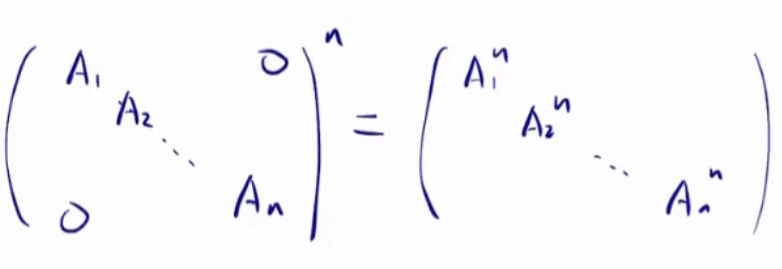 $\begin{pmatrix} A_1 & & & 0 \\ & A_2 & & \\ & & \ddots & \\ 0 & & & A_n \end{pmatrix}^n = \begin{pmatrix} A_1^n & & & \\ & A_2^n & & \\ & & \ddots & \\ & & & A_n^n \end{pmatrix}$